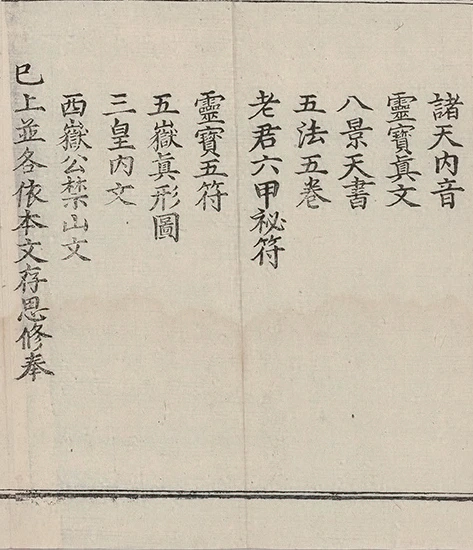 諸天內音
靈寶真文
八景天書
五法五卷
老君六甲祕符
靈寶五符
五嶽真形圖
三皇內文
西嶽公禁山文
已上並各依本文存思修奉